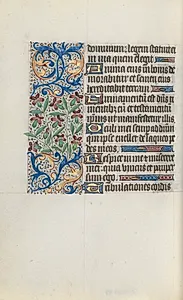 dominum: legem statuit ei
in via quam elegit
Anima eius in bonis de
morabitur et semen eius
hereditabit terram
Firmamentum est dominus
ut manifestetur illis
Oculi mei semper ad dominum
quoniam ipse evellet de laqueo pe
des meos
Respice in me et miserere
mei: quia unicus et pauper
sum ego
Tribulationes cordis